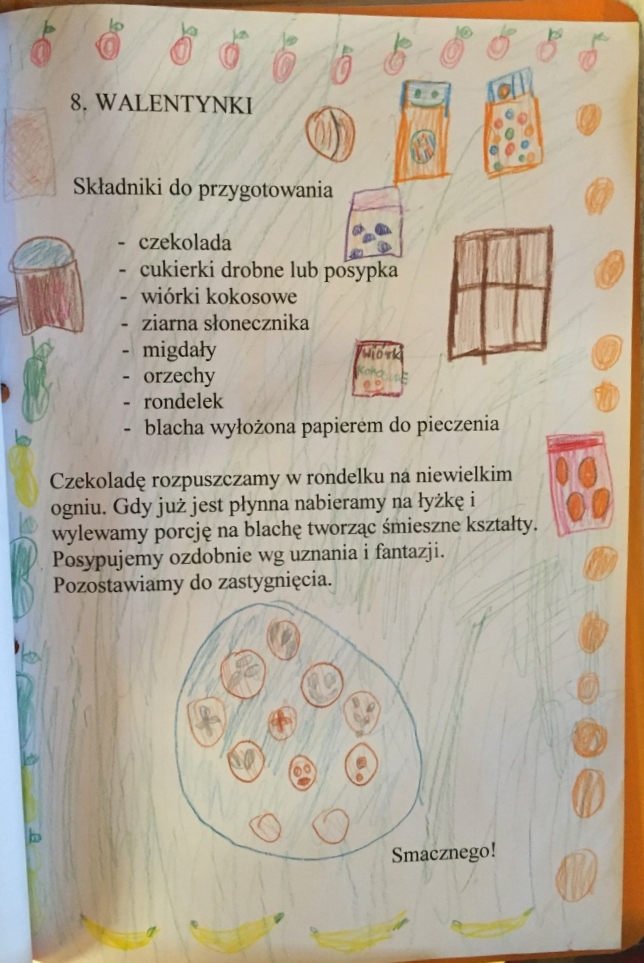 8. WALENTYNKI
Składniki do przygotowania
- czekolada
- cukierki drobne lub posypka
- wiórki kokosowe
- ziarna słonecznika
- migdały
- orzechy
- rondelek
- blacha wyłożona papierem do pieczenia
wiórki
Czekoladę rozpuszczamy w rondelku na niewielkim
ogniu. Gdy już jest płynna nabieramy na łyżkę i
wylewamy porcję na blachę tworząc śmieszne kształty.
Posypujemy ozdobnie wg uznania i fantazji.
Pozostawiamy do zastygnięcia.
Smacznego!